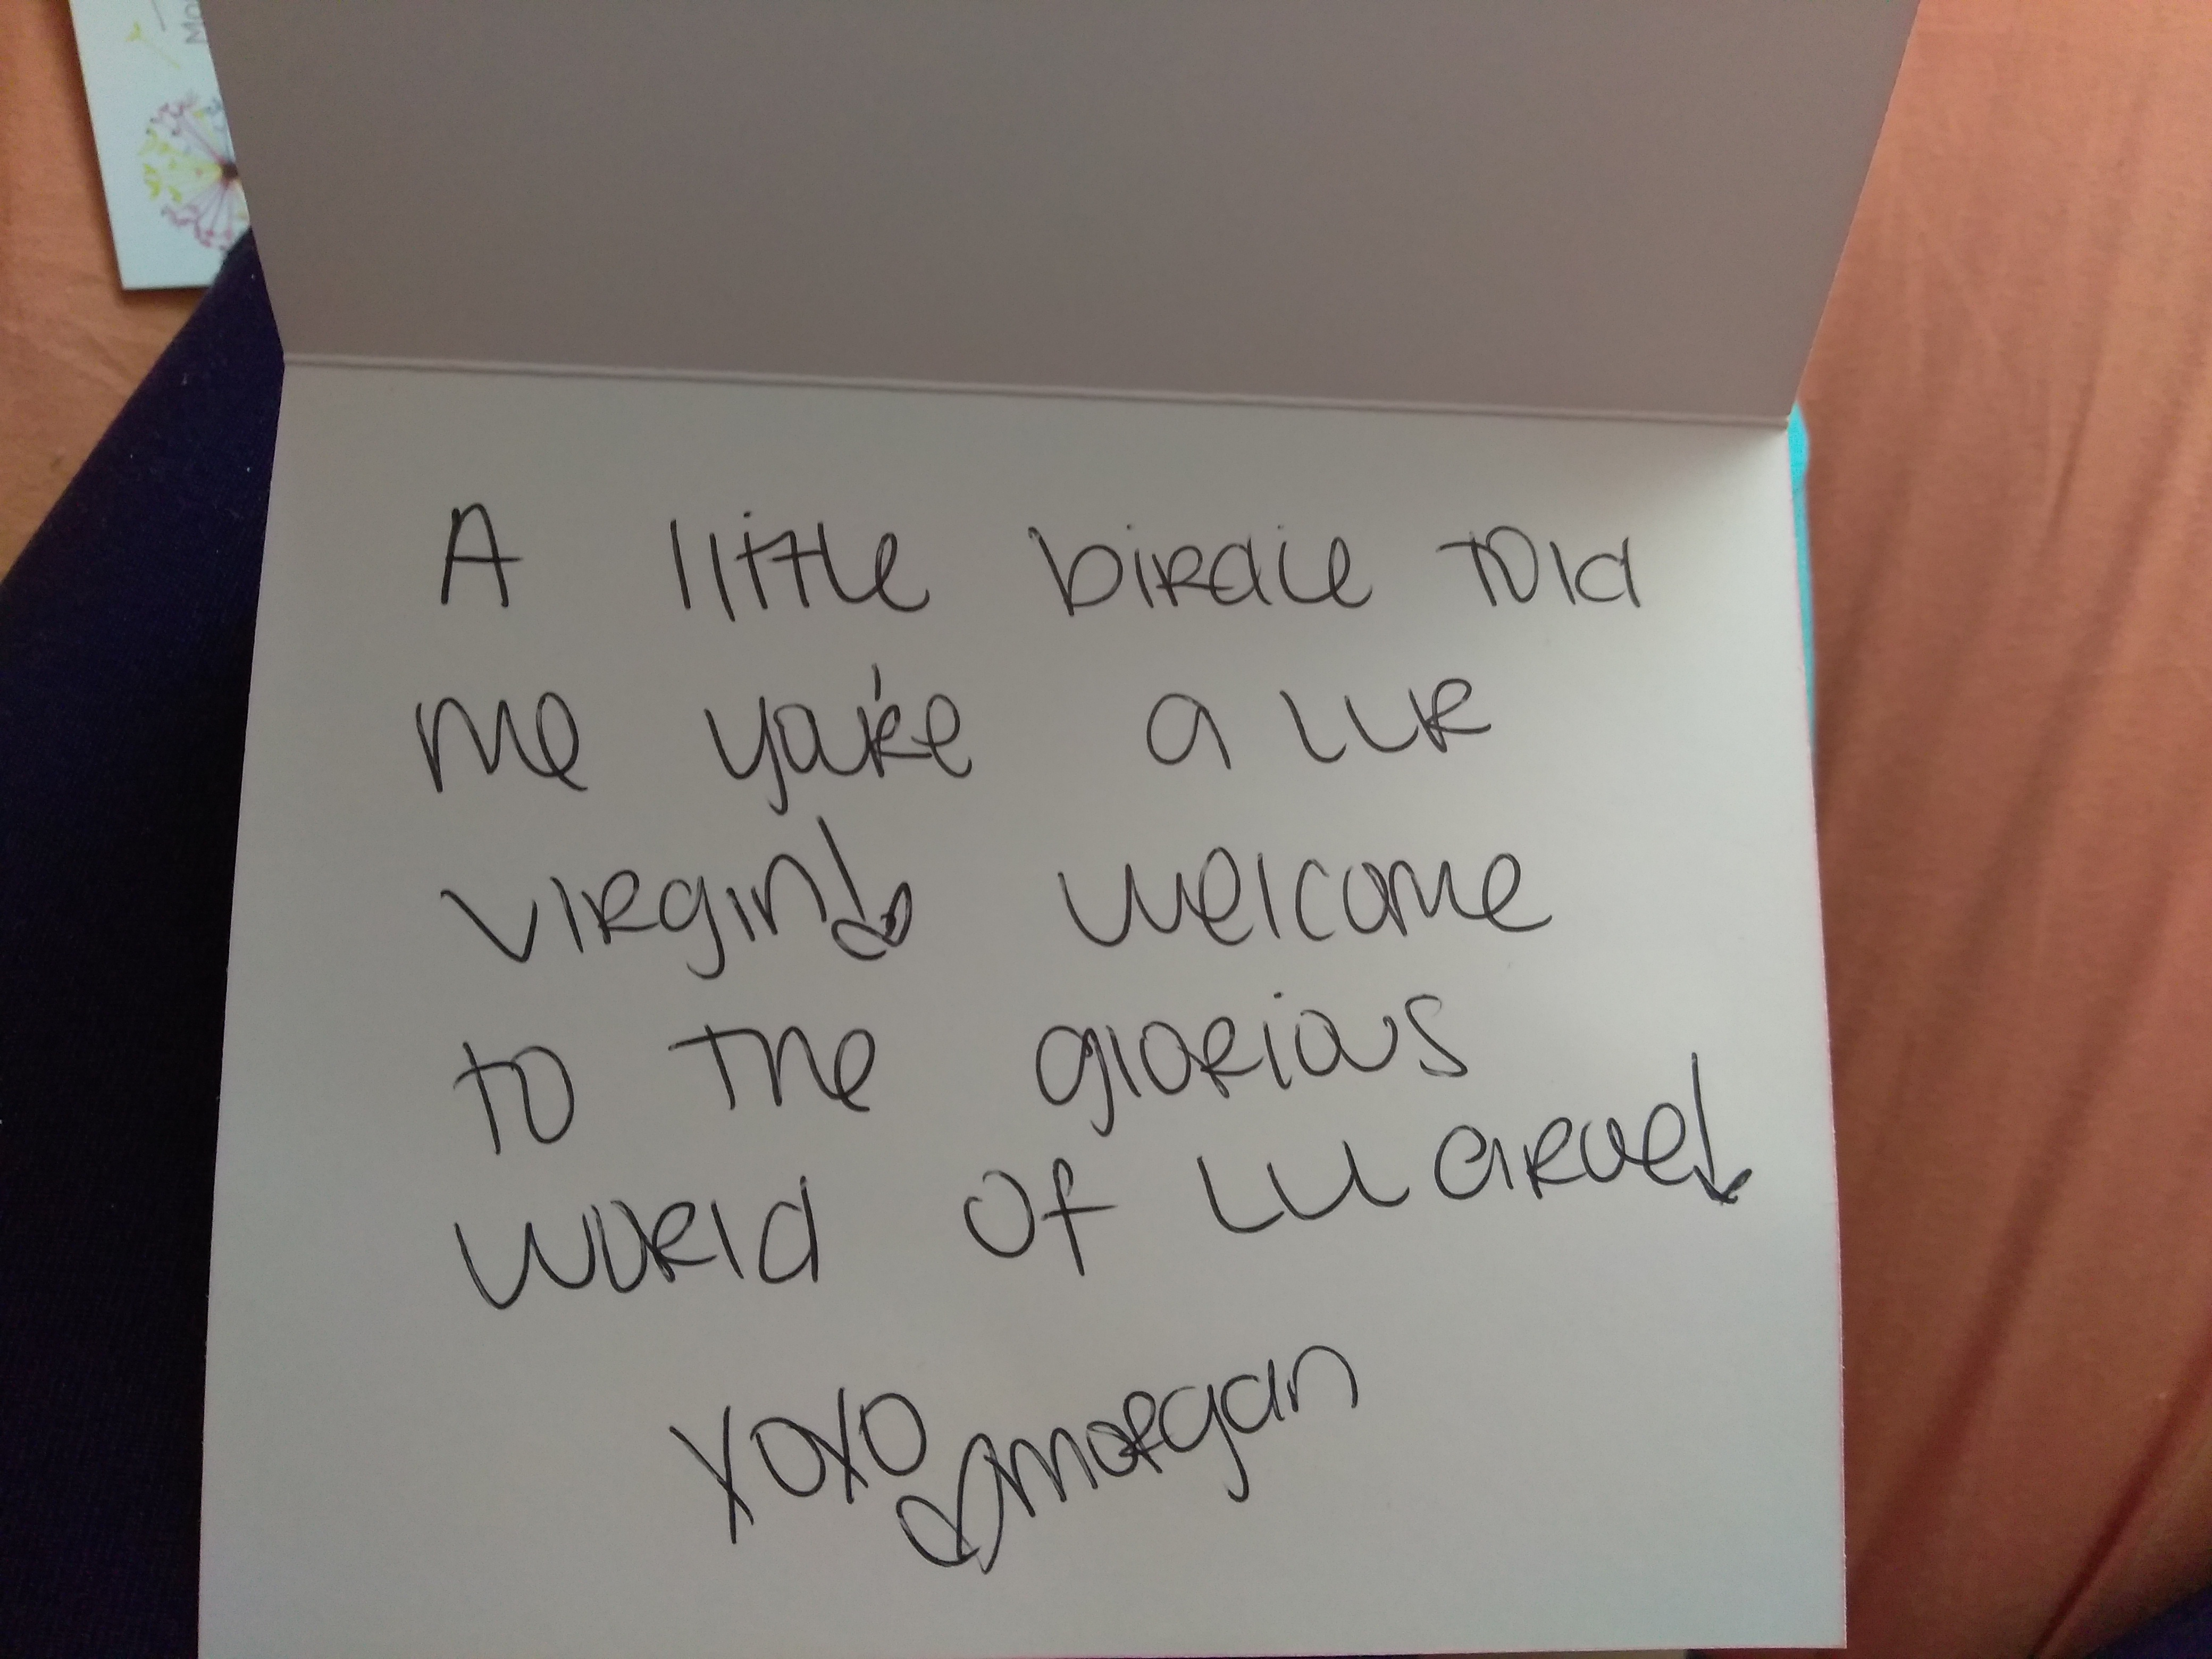 Mo
A little birdie told
me you're a LLR
virgin! welcome
to the glorious
world of LuLaRoe!
xoxo
morgan